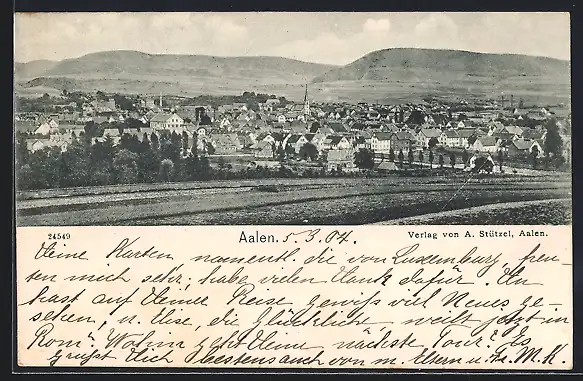 24549 Aalen. 5.3.04. Verlag von A. Stützel, Aalen.
Deine Karten, namentl. die von Luxemburg freu-
ten mich sehr; habe vielen Dank dafür. Du
hast auf Deiner Reise gewiss viel Neues ge-
sehen, u. Elise, die Glückliche weilt jetzt in
Rom? Wohin geht Deine nächste Tour? Es
grüsst Dich bestens auch von m. Eltern u. M.K.